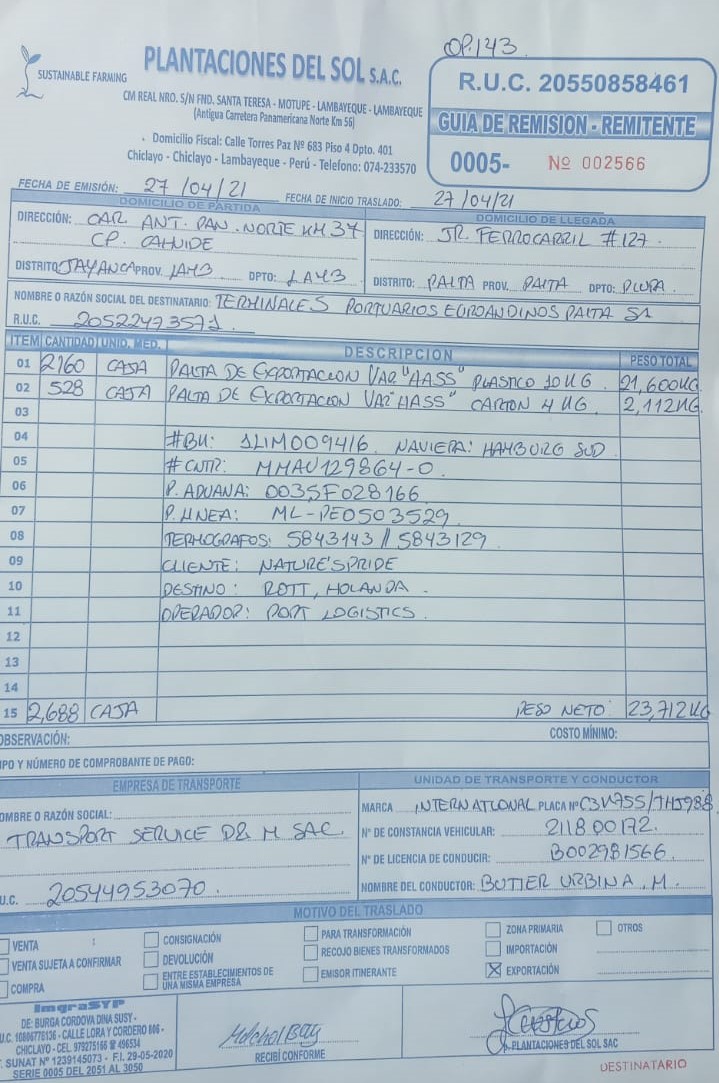 OP.143
SUSTAINABLE FARMING
PLANTACIONES DEL SOL S.A.C.
CM REAL NRO. S/N FND. SANTA TERESA - MOTUPE - LAMBAYEQUE - LAMBAYEQUE
(Antigua Carretera Panamericana Norte Km 56)
Domicilio Fiscal: Calle Torres Paz Nº 683 Piso 4 Dpto. 401
Chiclayo - Chiclayo - Lambayeque - Perú - Telefono: 074-233570
R.U.C. 20550858461
GUIA DE REMISION - REMITENTE
0005- Nº 002566
FECHA DE EMISIÓN: 27/04/21 FECHA DE INICIO TRASLADO: 27/04/21
DOMICILIO DE PARTIDA
DIRECCIÓN: CAR ANT. PAN. NORTE KM 37
CP. CAHUIDE
DISTRITO: JAYANCA PROV. LAMB DPTO: LAMB
DOMICILIO DE LLEGADA
DIRECCIÓN: JR. FERROCARRIL #127.
DISTRITO: PAITA PROV. PAITA DPTO: PIURA.
NOMBRE O RAZÓN SOCIAL DEL DESTINATARIO: TERMINALES PORTUARIOS EUROANDINOS PAITA SA
R.U.C. 20522473571.
ITEM CANTIDAD UNID. MED. DESCRIPCION PESO TOTAL
01 2160 CAJA PALTA DE EXPORTACION VAR "HASS" PLASTICO 10 KG. 21,600KG
02 528 CAJA PALTA DE EXPORTACION VAR "HASS" CARTON 4 KG. 2,112KG.
03
04 #BK: 1LIM009416. NAVIERA: HAMBURG SUD.
05 # CNTR: MMAU129864-0.
06 P. ADUANA: 003SF028166.
07 P. LINEA: ML-PE0503529.
08 TERMOGRAFOS: 5843143 // 5843129.
09 CLIENTE: NATURE'SPRIDE
10 DESTINO: ROTT, HOLANDA.
11 OPERADOR: PORT LOGISTICS.
12
13
14
15 2,688 CAJA PESO NETO: 23,712KG
OBSERVACIÓN: COSTO MÍNIMO:
IPO Y NÚMERO DE COMPROBANTE DE PAGO:
EMPRESA DE TRANSPORTE
OMBRE O RAZÓN SOCIAL:
TRANSPORT SERVICE D& M SAC.
U.C. 20544953070.
UNIDAD DE TRANSPORTE Y CONDUCTOR
MARCA INTERNATIONAL PLACA Nº C3V755/THJ988
Nº DE CONSTANCIA VEHICULAR: 211800172.
Nº DE LICENCIA DE CONDUCIR: B002981566.
NOMBRE DEL CONDUCTOR: BUTIER URBINA. M.
MOTIVO DEL TRASLADO
VENTA
VENTA SUJETA A CONFIRMAR
COMPRA
CONSIGNACIÓN
DEVOLUCIÓN
ENTRE ESTABLECIMIENTOS DE
UNA MISMA EMPRESA
PARA TRANSFORMACIÓN
RECOJO BIENES TRANSFORMADOS
EMISOR ITINERANTE
ZONA PRIMARIA
IMPORTACIÓN
X EXPORTACIÓN
OTROS
ImgraSYP
DE: BURGA CORDOVA DINA SUSY -
U.C. 10806778126 - CALLE LORA Y CORDERO 806 -
CHICLAYO - CEL. 979275166 ☎ 496534
SUNAT Nº 1239145073 - F.I. 29-05-2020
SERIE 0005 DEL 2051 AL 3050
RECIBÍ CONFORME
PLANTACIONES DEL SOL SAC
DESTINATARIO